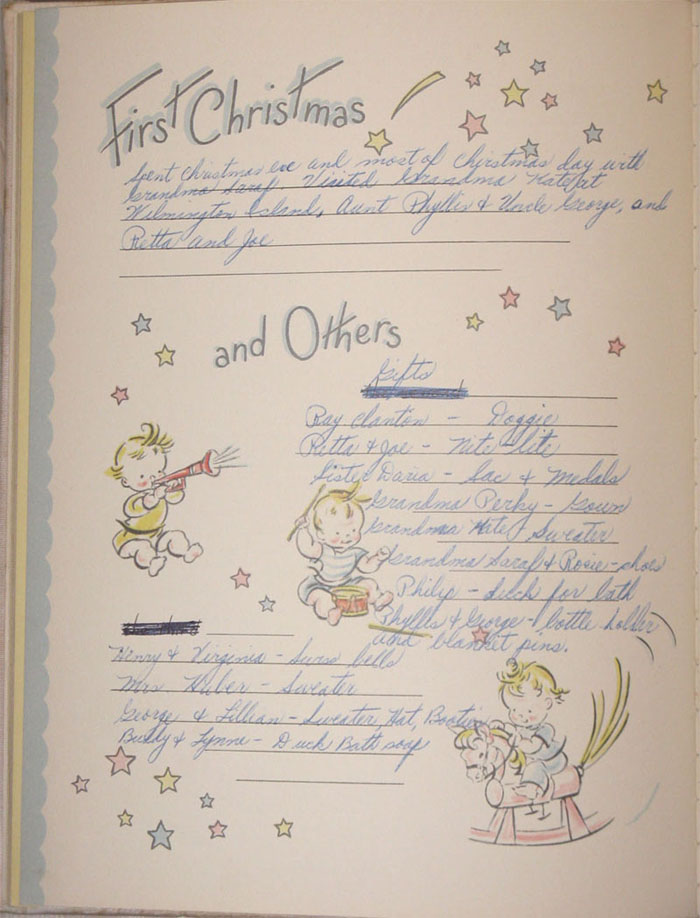 First Christmas
Spent Christmas eve and most of Christmas day with
Grandma Saraf. Visited Grandma Kate at
Wilmington Island, Aunt Phyllis & Uncle George, and
Retta and Joe
and Others
Gifts
Ray Clanton - Doggie
Retta & Joe - Nite lite
Sister Daria - Sac & Medals
Grandma Perky - Gown
Grandma Kate - Sweater
Grandma Saraf & Rosie - shoes
Philip - duck for bath
Phyllis & George - bottle holder
and blanket pins.
Henry & Virginia - bells
Mrs. Huber - Sweater
George & Lillian - Sweater, Hat, Booties
Buddy & Lynne - Duck Bath soap